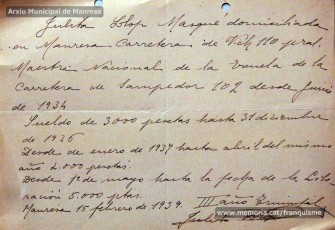 Arxiu Municipal de Manresa
Julita Llop Masqué domiciliada
en Manresa Carretera de Vich 110 pral.
Maestra Nacional de la Escuela de la
Carretera de Sampedor 102 desde Junio
de 1934
Sueldo de 3000 pesetas hasta 31 diciembre
de 1936
Desde de enero de 1937 hasta abril del mismo
año 4.000 pesetas.
Desde 1º de mayo hasta la fecha de la
ración 5.000 ptas.
Manresa 15 febrero de 1939. III año Triunfal
Julita Llop
www.memoria.cat/franquisme